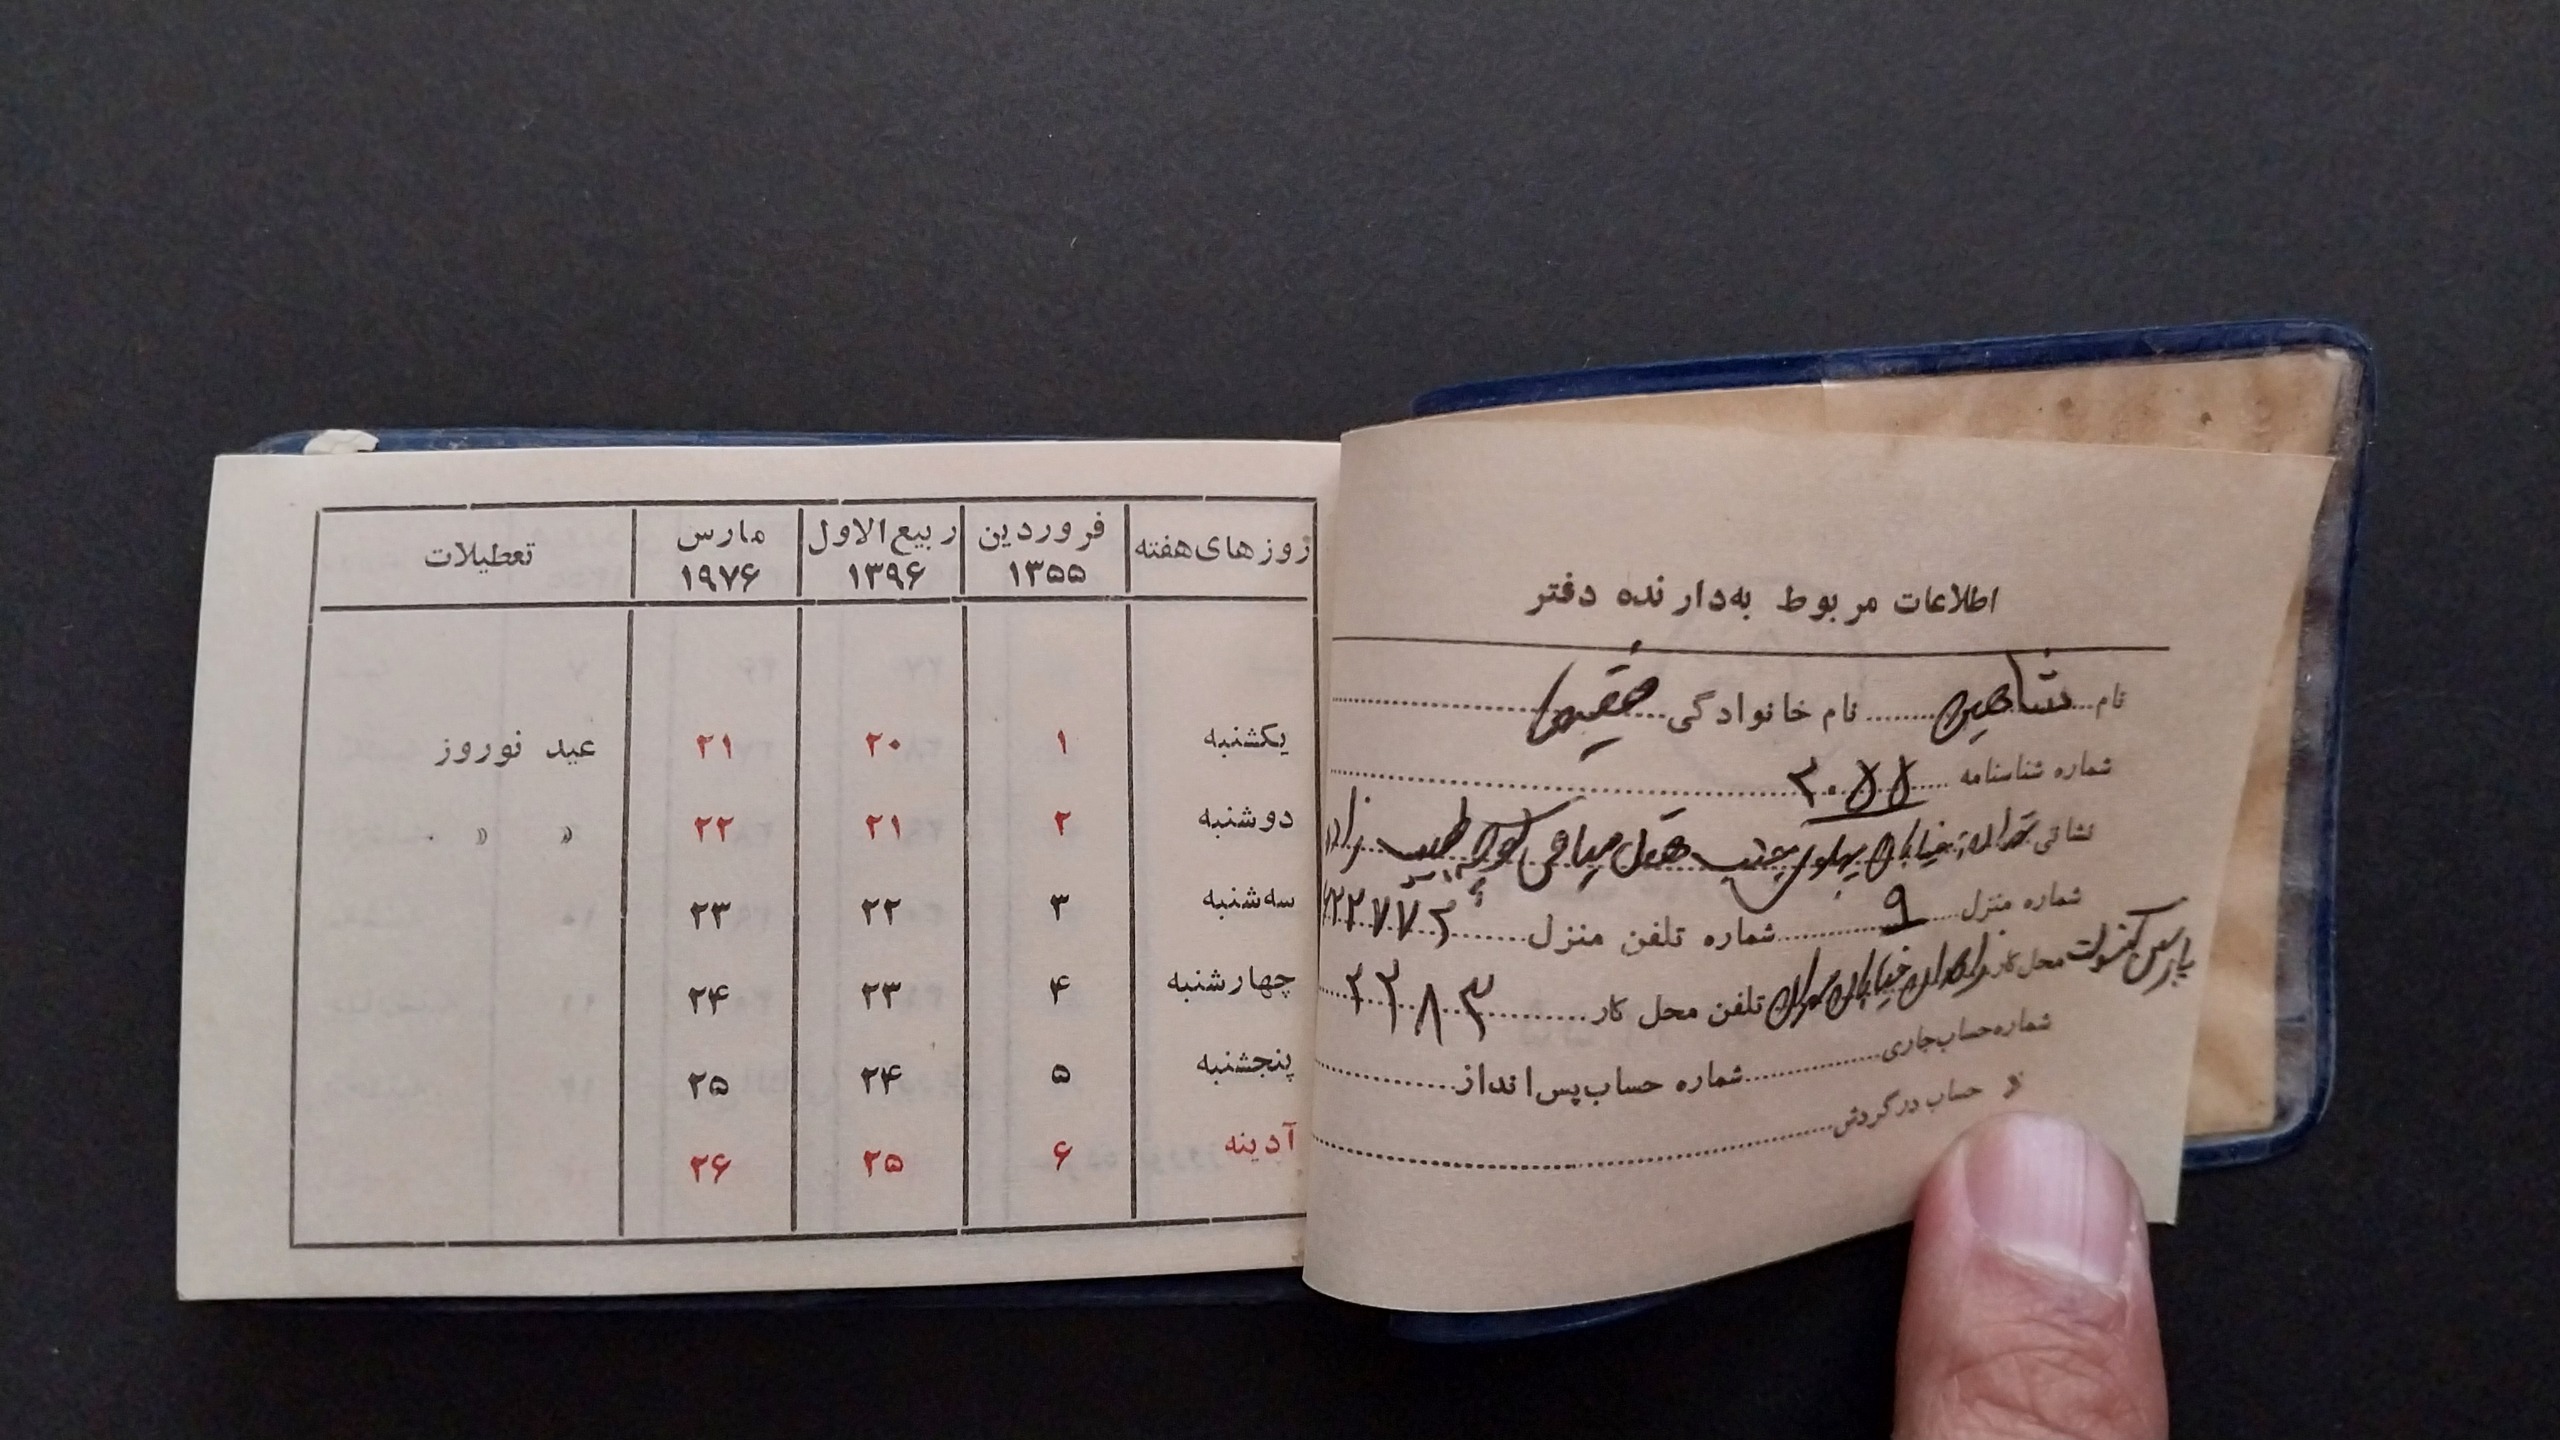 اطلاعات مربوط به‌دارنده دفتر
نام شاهین نام خانوادگی
شماره شناسنامه ۲۰۵۵
نشانی تهران خیابان پهلوی جنب هتل میامی کوچه طبیب زاده
شماره منزل ۹ شماره تلفن منزل
پارس کنسولت محل کار زاهدان خیابان تلفن محل کار ۲۲۸۳
شماره حساب جاری شماره حساب پس‌انداز
« حساب در گردش
روزهای هفته فروردین ۱۳۵۵ ربیع‌الاول ۱۳۹۶ مارس ۱۹۷۶ تعطیلات
یکشنبه ۱ ۲۰ ۲۱ عید نوروز
دوشنبه ۲ ۲۱ ۲۲ « «
سه‌شنبه ۳ ۲۲ ۲۳
چهارشنبه ۴ ۲۳ ۲۴
پنجشنبه ۵ ۲۴ ۲۵
آدینه ۶ ۲۵ ۲۶